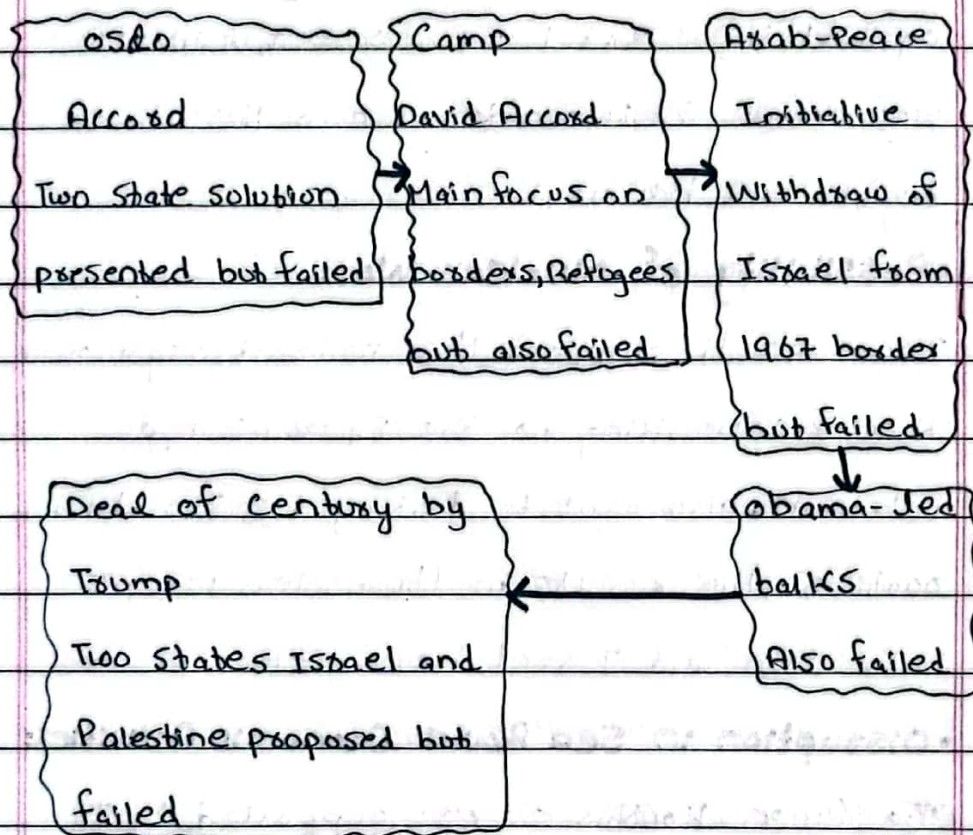 Oslo
Accord
Two State Solution
presented but failed
Camp
David Accord
Main focus on
borders, Refugees
but also failed
Arab-Peace
Initiative
Withdraw of
Israel from
1967 border
but failed
Obama-led
talks
Also failed
Deal of Century by
Trump
Two States Israel and
Palestine proposed but
failed